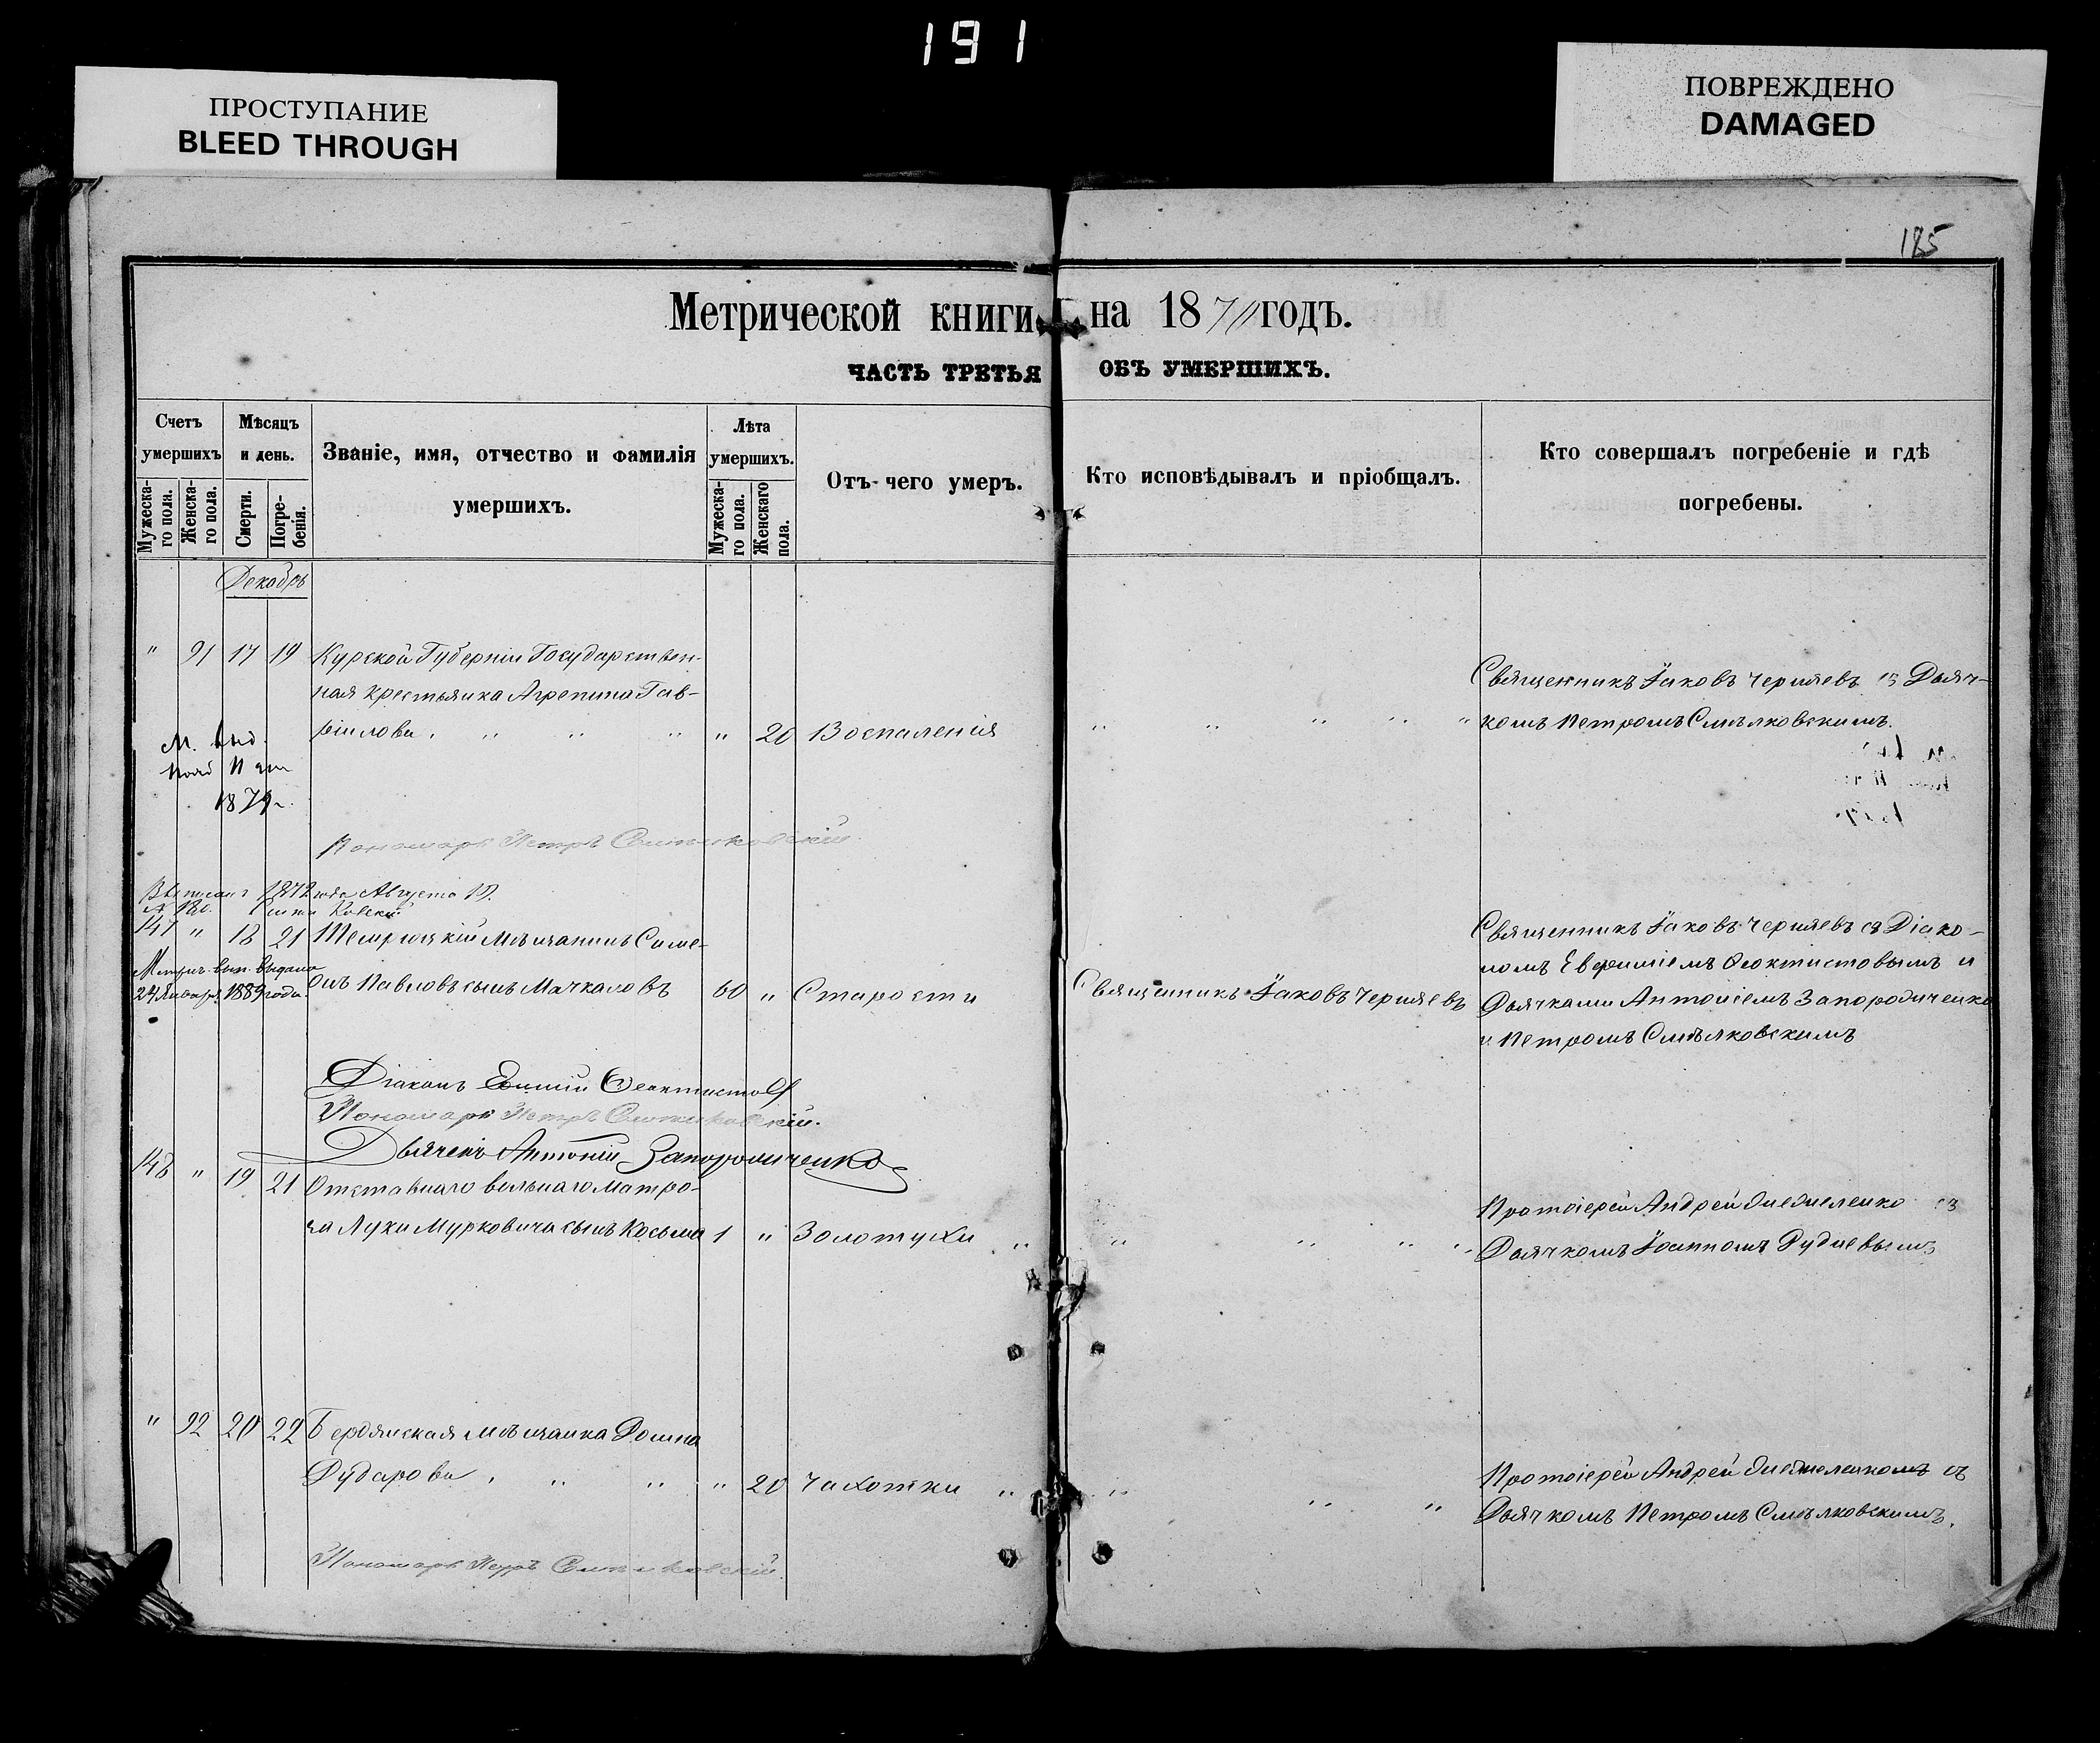 191
ПРОСТУПАНИЕ
BLEED THROUGH
ПОВРЕЖДЕНО
DAMAGED
185
Метрической книги на 1870 годъ.
ЧАСТЬ ТРЕТЬЯ ОБЪ УМЕРШИХЪ.
Счетъ умершихъ
Мужеска-го пола.
Женска-го пола.
Мѣсяцъ и день.
Смерти.
Погре-бенія.
Званіе, имя, отчество и фамилія умершихъ.
Лѣта умершихъ.
Мужеска-го пола.
Женскаго пола.
Отъ чего умеръ.
Кто исповѣдывалъ и пріобщалъ.
Кто совершалъ погребеніе и гдѣ погребены.
Декабрь
" 91 17 19 Курской Губерніи Государствен-
ная крестьянка Агрепина Гав-
ріилова " 20 Воспаленія
Священникъ Іаковъ Черняевъ съ Дьяч-
комъ Петромъ Смѣлковскимъ.
М. выд.
1879
Пономарь Петръ Смѣлковскій.
1872 года Августа
147 " 18 21 Темрюцкій Мѣщанинъ Симе-
онъ Павловъ сынъ Мачкаловъ 60 " Старости
Метрич. вып. выдана
24 Января 1889 года.
Священникъ Іаковъ Черняевъ
Священникъ Іаковъ Черняевъ съ Діако-
номъ Евфиміемъ Ѳеоктистовымъ и
Дьячками Антоніемъ Запорожченко
и Петромъ Смѣлковскимъ
Діаконъ Ѳеоктистов
Пономарь Петръ Смѣлковскій.
Дьячекъ Антоній Запорожченко
148 " 19 21 Отставнаго вольнаго матро-
за Луки Мурковича сынъ Косьма 1 " Золотухи
Протоіерей Андрей
Дьячкомъ Іоанномъ Рудневымъ
" 92 20 22 Бердянская мѣщанка Домна
Дударова " 20 Чахотки
Протоіерей Андрей съ
Дьячкомъ Петромъ Смѣлковскимъ.
Пономарь Петръ Смѣлковскій.